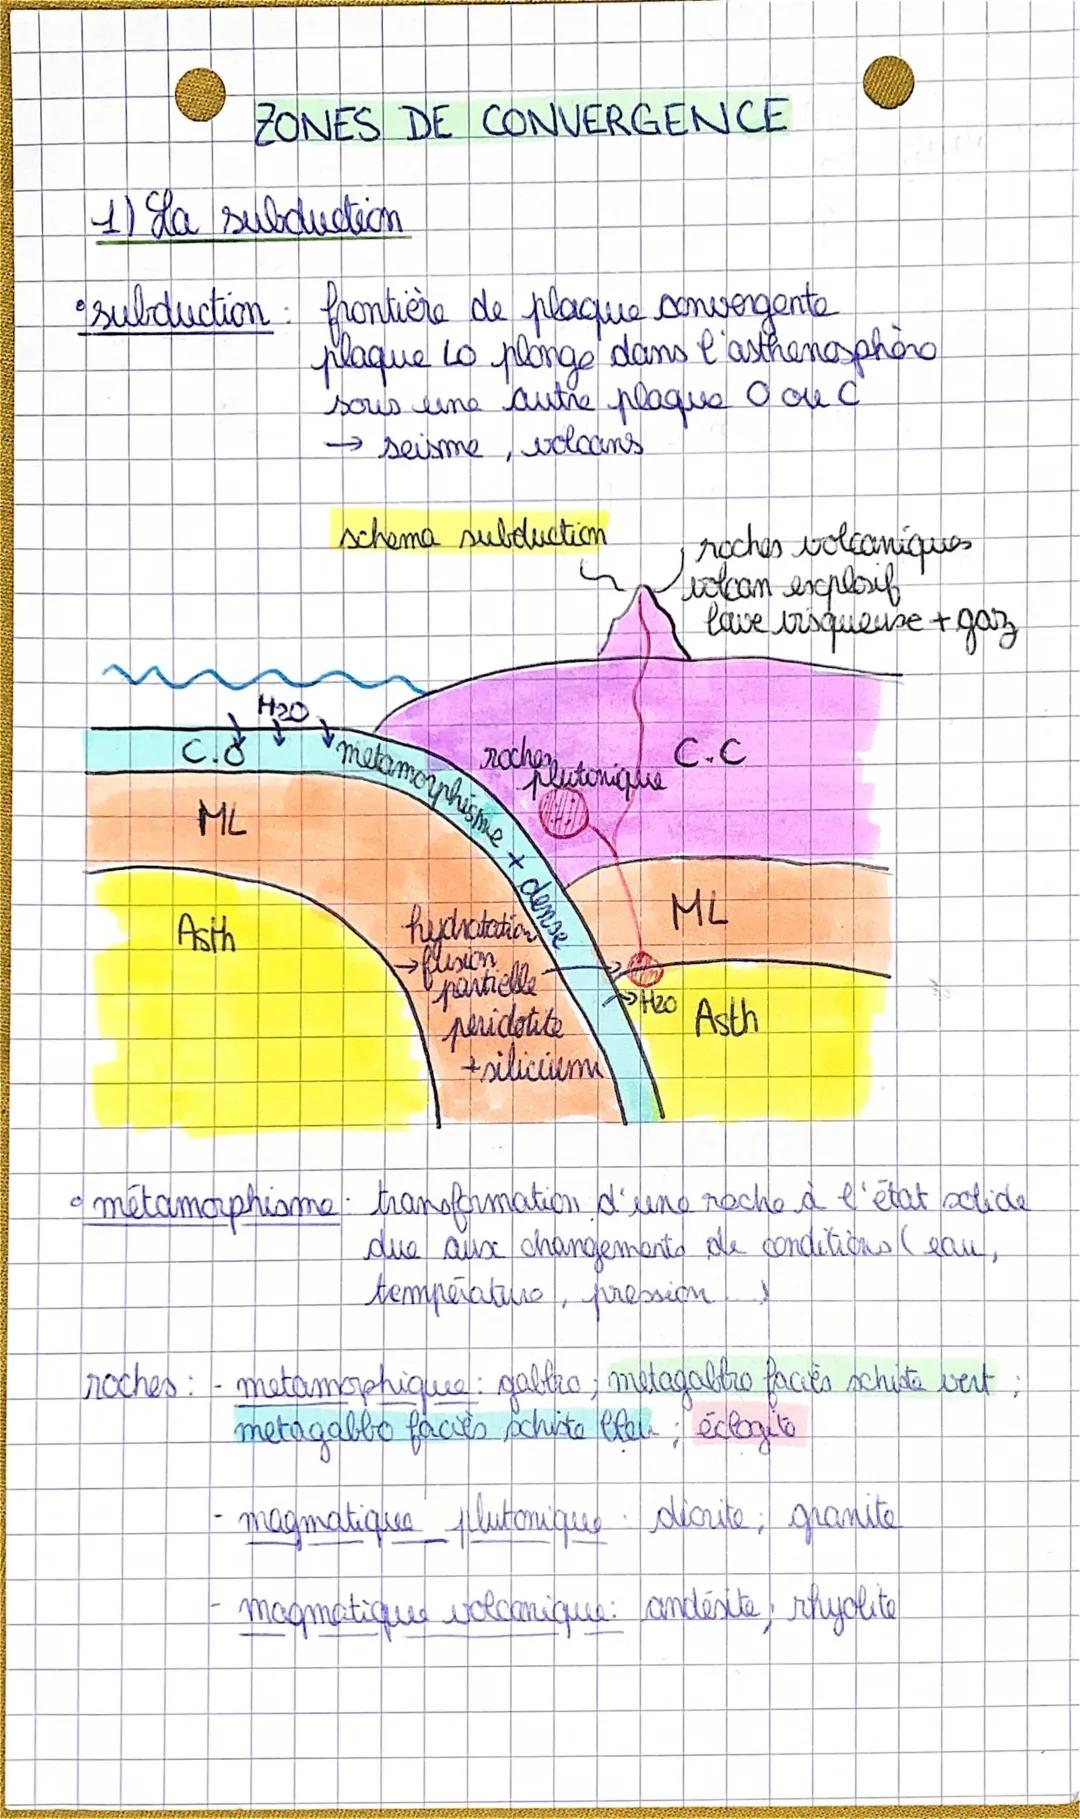 ZONES DE CONVERGENCE
1) La subduction
subduction : frontière de plaque convergente
plaque LO plonge dans l'asthénosphère
sous une autre plaque O ou C
→ seisme, volcans
schema subduction
roches volcaniques
volcan explosif
lave visqueuse + gaz
H2O
C.O
metamorphisme + dense
roches
plutonique
C.C
ML
ML
Asth
hydratation
→ fusion
partielle
peridotite
+ silicium
H2O
Asth
métamorphisme : transformation d'une roche à l'état solide
due aux changements de conditions (eau,
température, pression...)
roches : - metamorphique : gabbro ; métagabbro faciès schiste vert ;
metagabbo faciès schiste bleu ; éclogite
- magmatique plutonique : diorite ; granite
- magmatique volcanique : andésite ; rhyolite